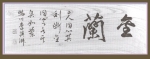 金蘭
二人同心其
利斷金
同心之言
其臭如蘭